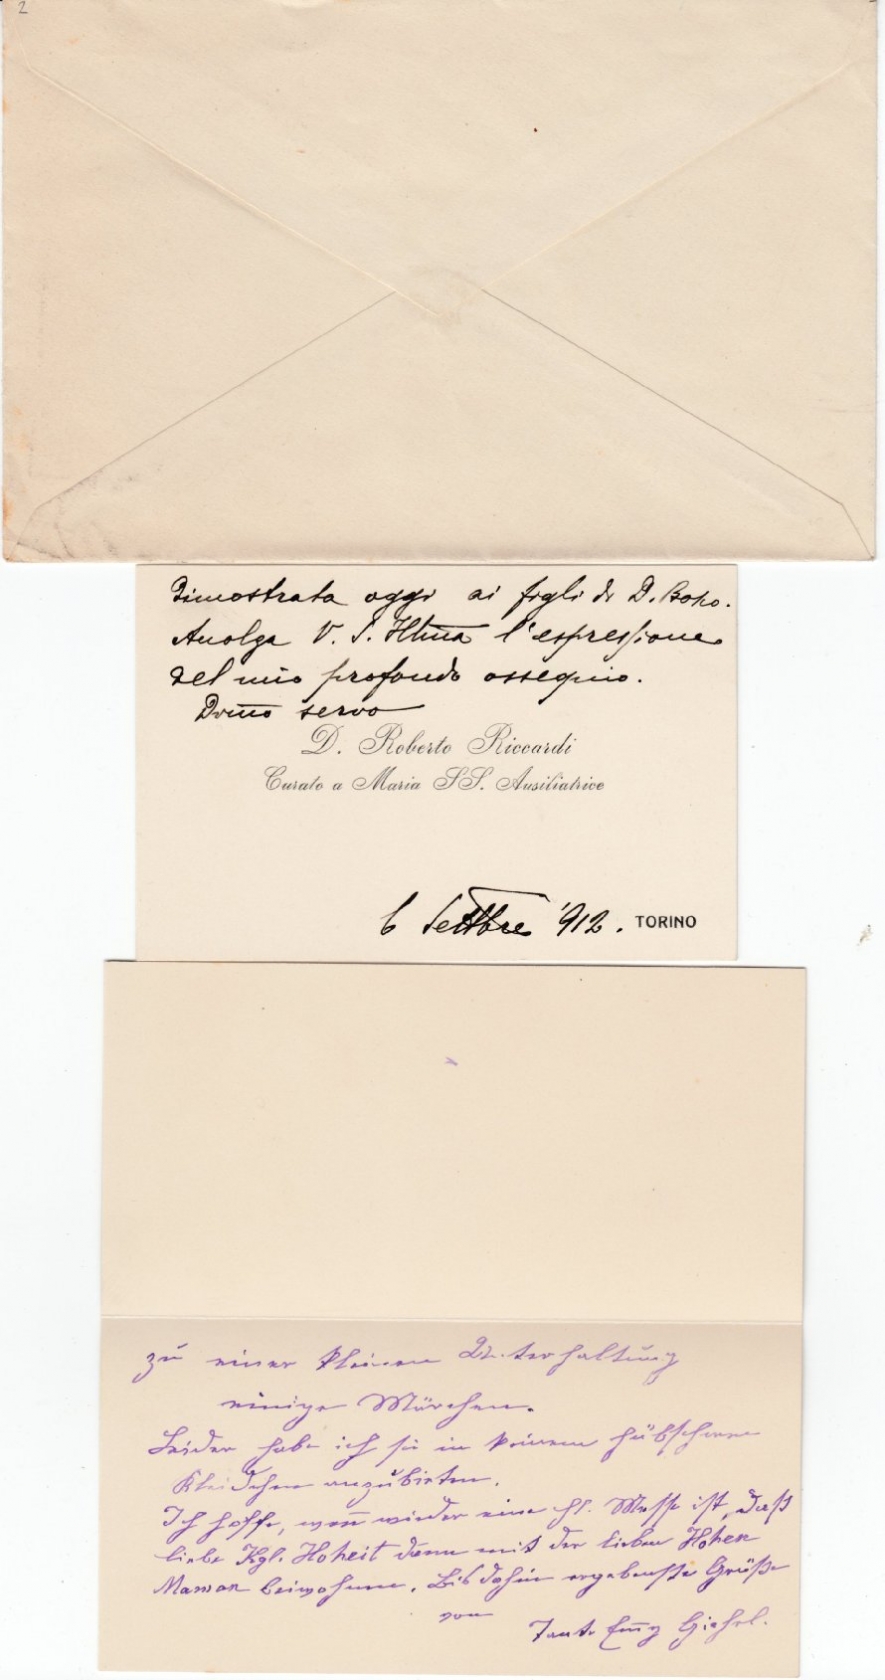 2
Dimostrata oggi ai figli di D. Bosco.
Accolga V. S. Illma l'espressione
del mio profondo ossequio.
Devmo servo
D. Roberto Riccardi
Curato a Maria SS. Ausiliatrice
6 Settbre '912. TORINO
zu einer kleinen Unterhaltung
einige Märchen.
Leider habe ich sie in keinem hübscheren
Kleidchen anzubieten.
Ich hoffe, wenn wieder eine hl. Messe ist, daß
liebe Kgl. Hoheit dann mit der lieben Hohen
Maman beiwohnen. Bis dahin ergebenste Grüße
von
Tante Emmy Giehrl.